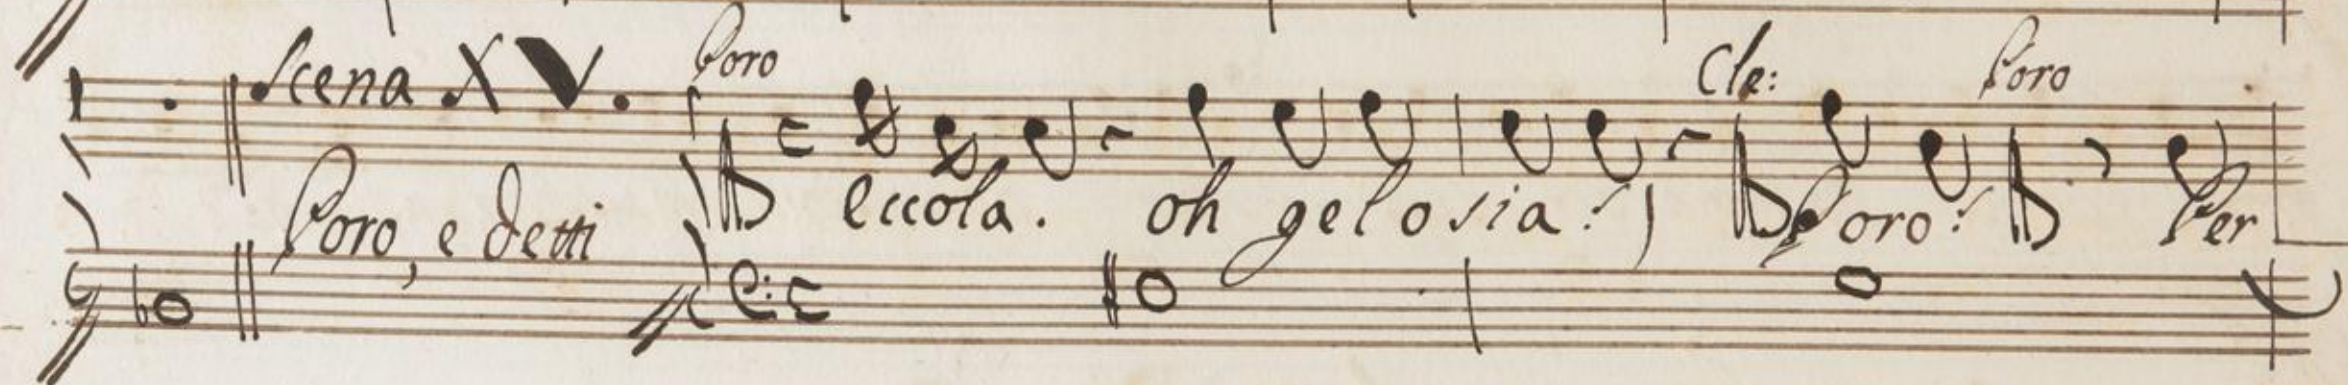 Scena XV. Poro Cle: Poro
Poro, e detti eccola. oh gelosia!) Poro! Per